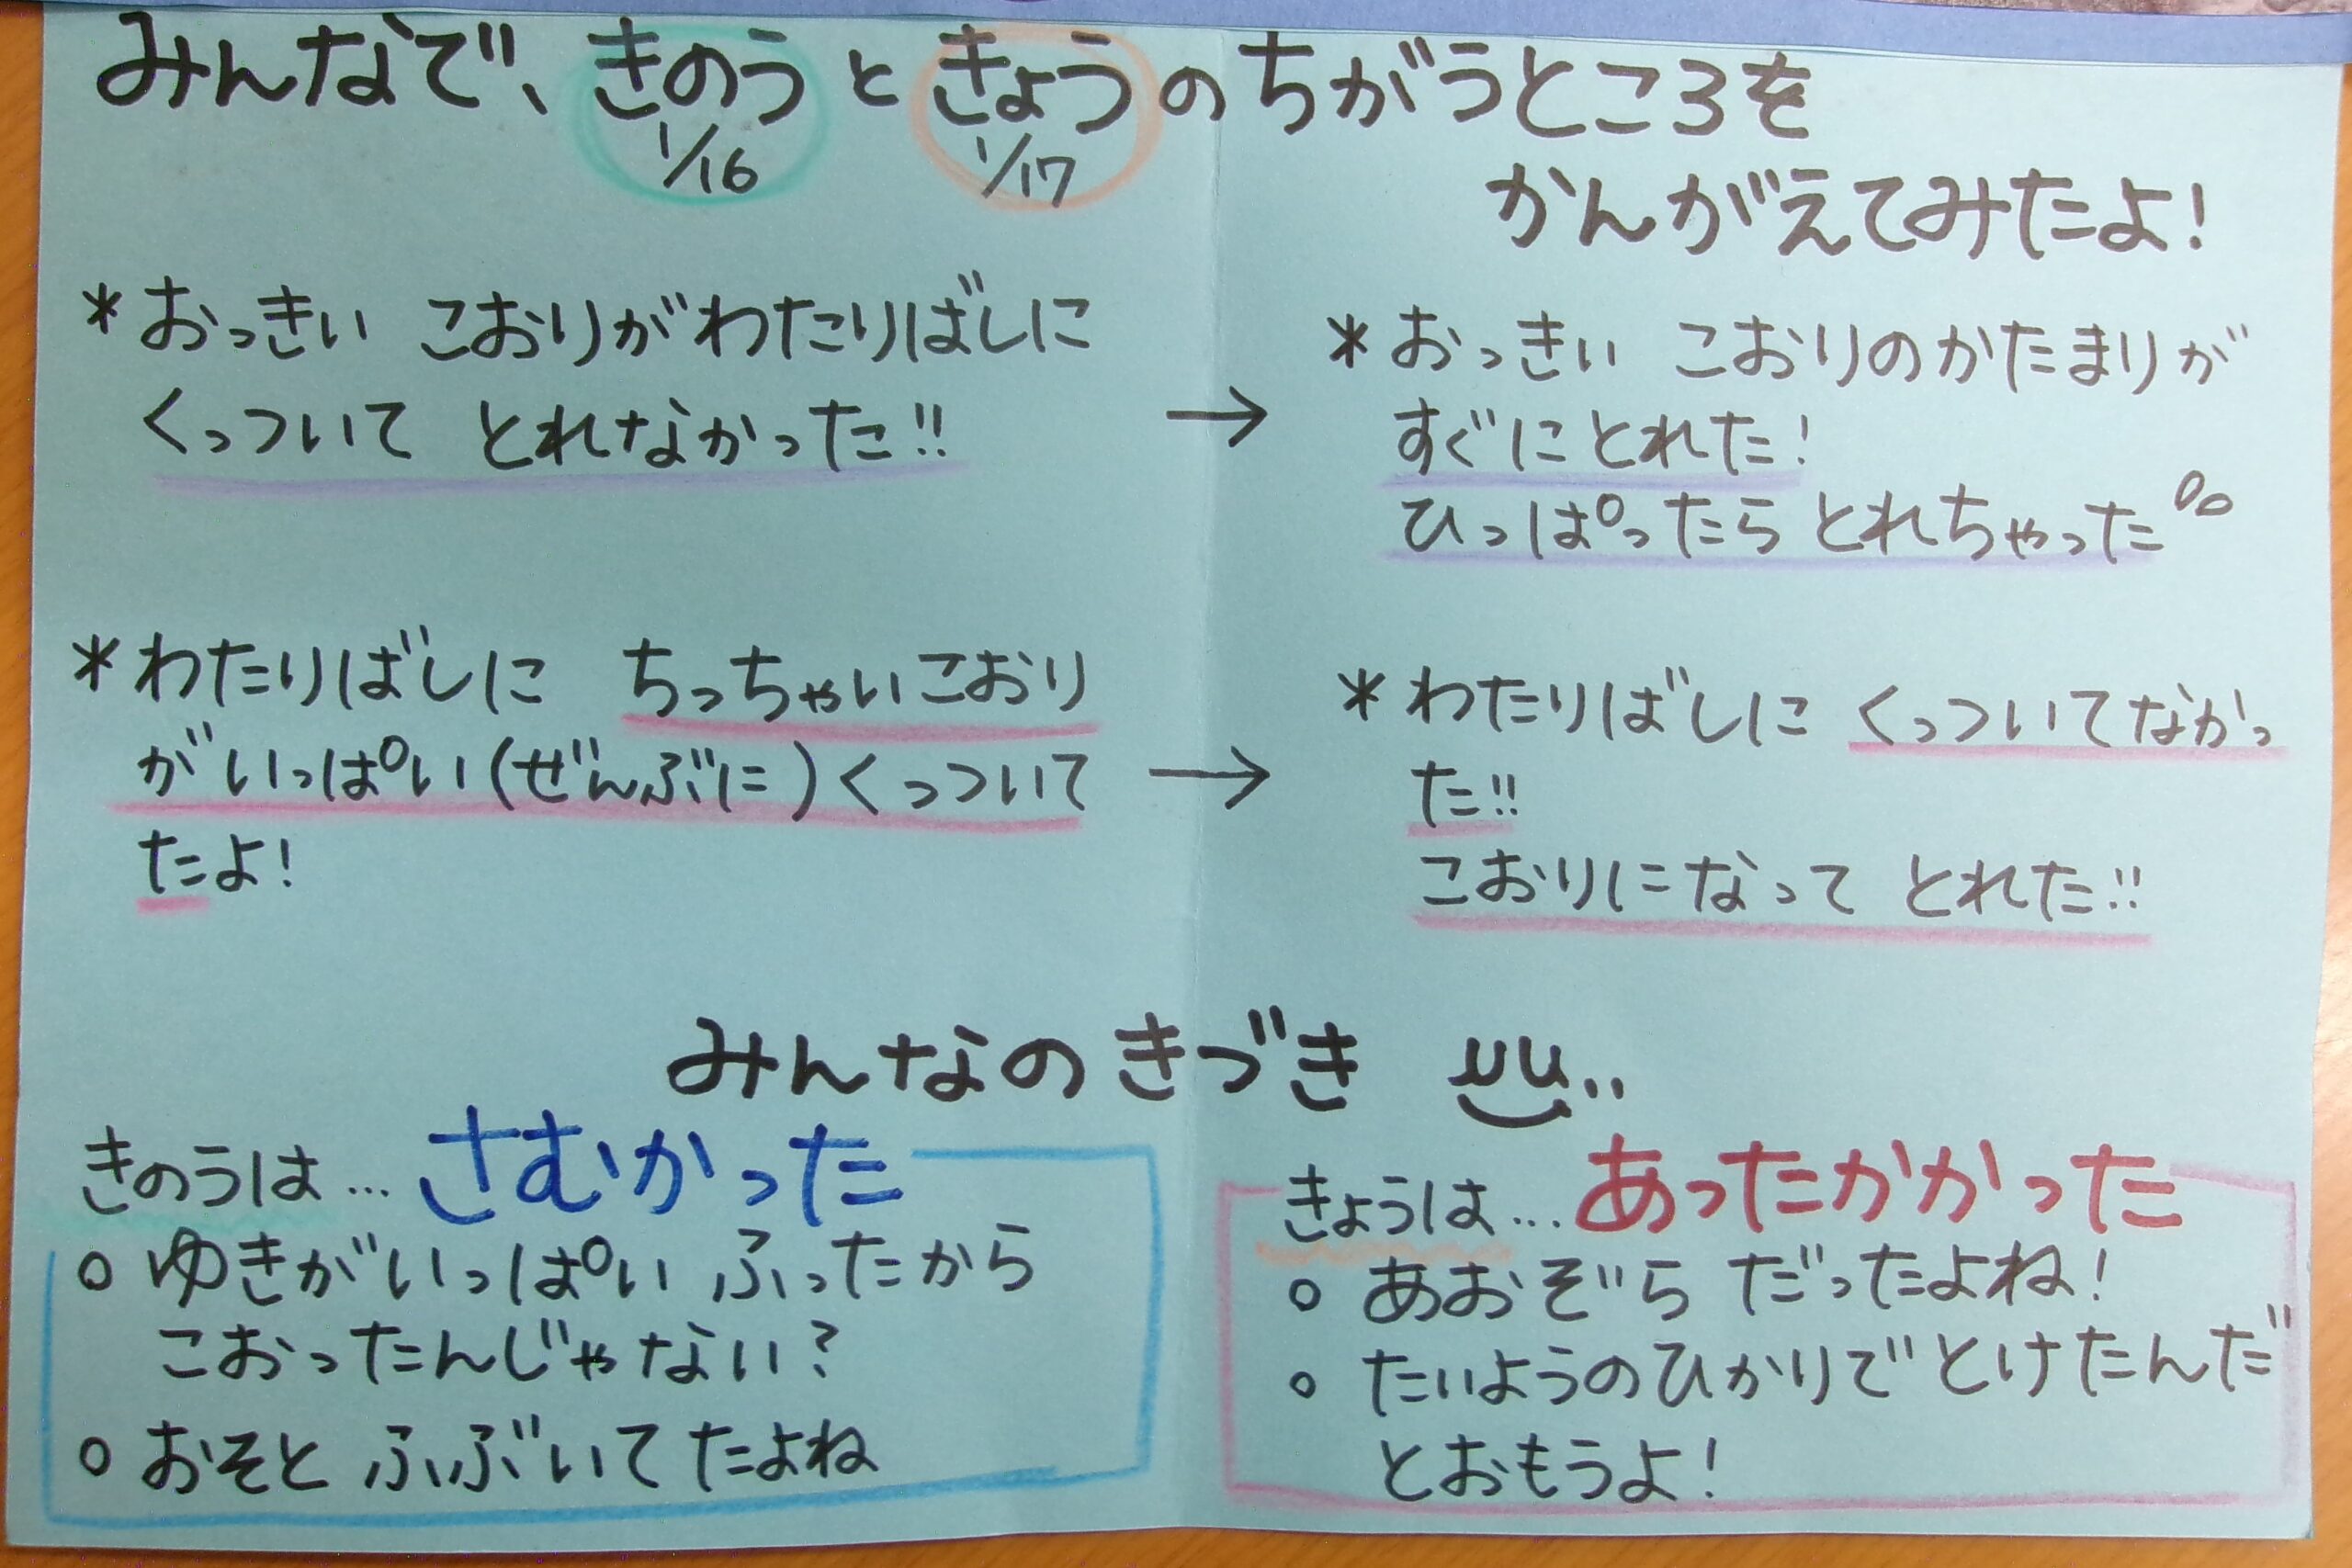 みんなで、きのうときょうのちがうところを
1/16 1/17
かんがえてみたよ!
*おっきい こおりがわたりばしに
くっついて とれなかった!!
→
*おっきい こおりのかたまりが
すぐにとれた!
ひっぱったら とれちゃった
*わたりばしに ちっちゃいこおり
がいっぱい(ぜんぶに)くっついて
たよ!
→
*わたりばしに くっついてなかっ
た!!
こおりになって とれた!!
みんなのきづき
きのうは…さむかった
○ゆきがいっぱい ふったから
こおったんじゃない?
○おそと ふぶいてたよね
きょうは…あったかかった
○あおぞら だったよね!
○たいようのひかりでとけたんだ
とおもうよ!